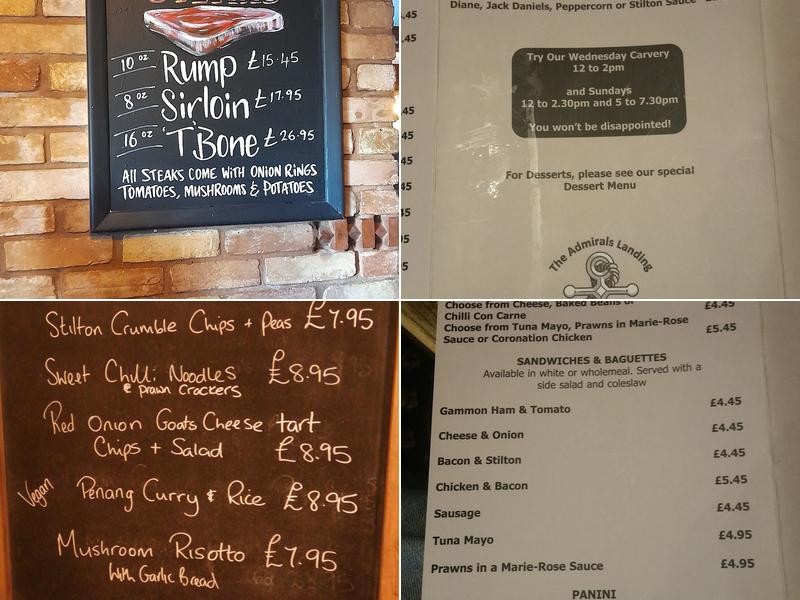 10 oz Rump £15.45
8 oz Sirloin £17.95
16 oz 'T'Bone £26.95
All STEAKS COME WITH ONION RINGS
TOMATOES, MUSHROOMS & POTATOES
Diane, Jack Daniels, Peppercorn or Stilton Sauce
.45
.45
Try Our Wednesday Carvery
12 to 2pm
and Sundays
12 to 2.30pm and 5 to 7.30pm
You won't be disappointed!
45
45
For Desserts, please see our special
Dessert Menu
45
95
The Admirals Landing
5
Stilton Crumble Chips + Peas £7.95
Sweet Chilli Noodles £8.95
& Prawn Crackers
Red Onion Goats Cheese tart
Chips + Salad £8.95
Vegan Penang Curry & Rice £8.95
Mushroom Risotto £7.95
With Garlic Bread
Choose from Cheese, Baked Beans or £4.45
Chilli Con Carne
Choose from Tuna Mayo, Prawns in Marie-Rose £5.45
Sauce or Coronation Chicken
SANDWICHES & BAGUETTES
Available in white or wholemeal. Served with a
side salad and coleslaw
Gammon Ham & Tomato £4.45
Cheese & Onion £4.45
Bacon & Stilton £4.45
Chicken & Bacon £5.45
Sausage £4.45
Tuna Mayo £4.95
Prawns in a Marie-Rose Sauce £4.95
PANINI